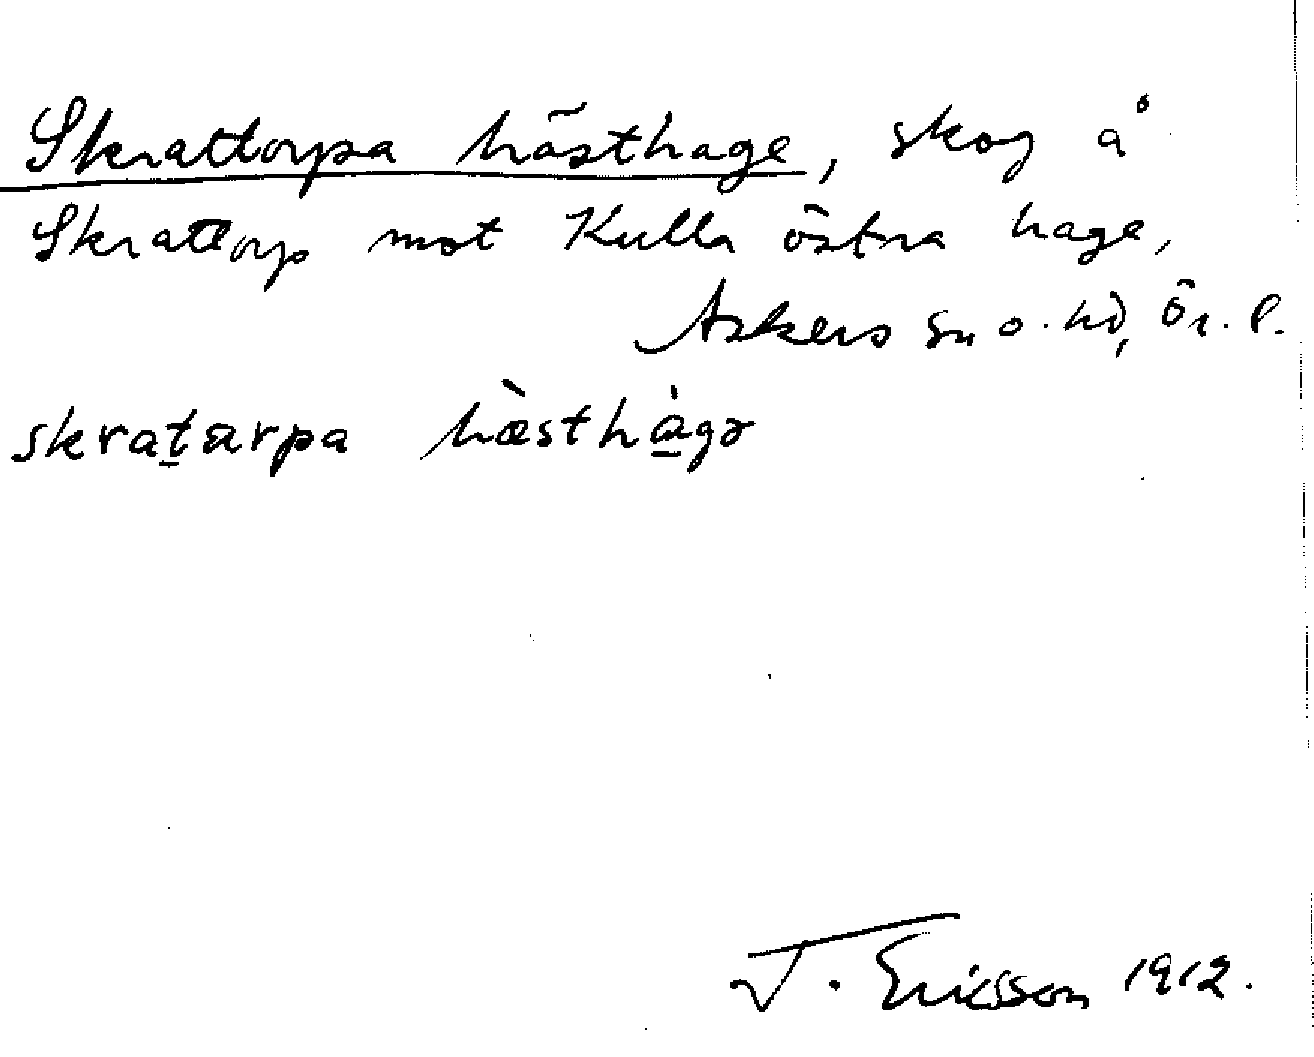 Skrattorpa hästhage, skog å
Skrattorp mot Kulla östra hage,
Askers sn o. hd, Ör. l.
skrat̠arpa hæ̀sthà̠gə
J. Ericsson 1912.